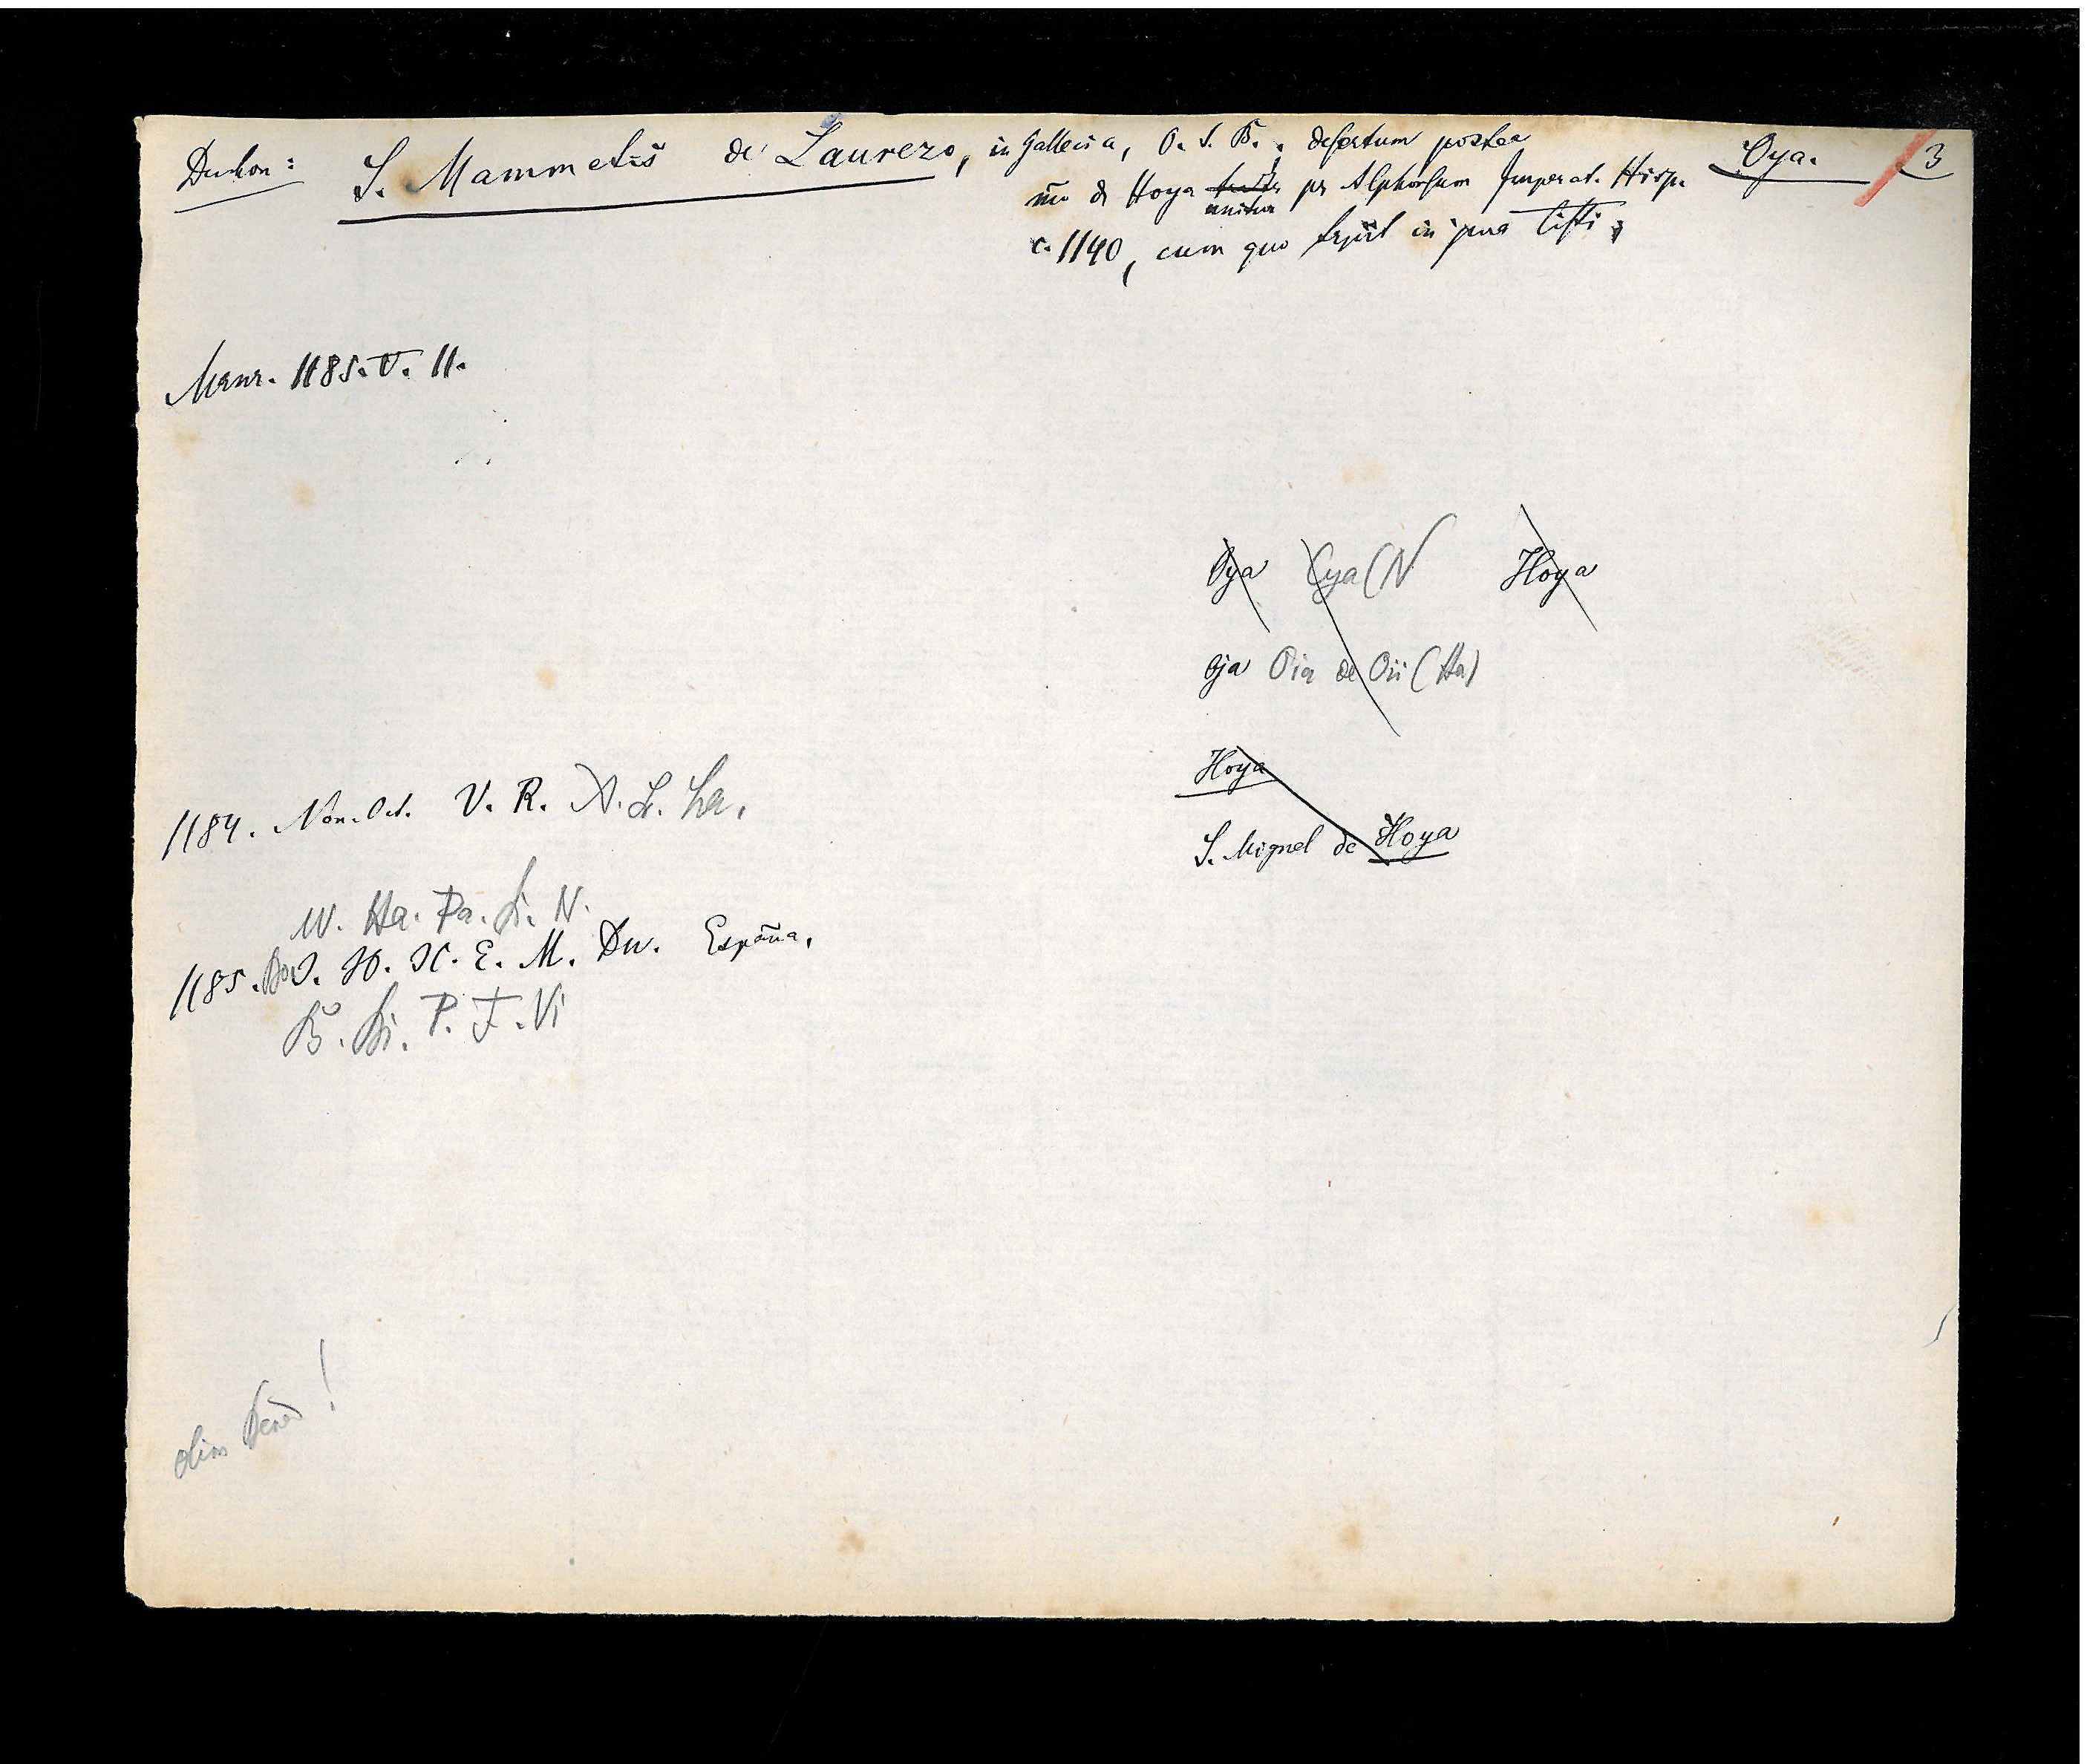 Duhon: S. Mammetis de Laurezo, in Gallecia, O. S. B., desertum postea Oya. 3
mo de Hoya unitur per Alphonsum Imperat. Hisp.
c. 1140, cum quo transiit in jura Cisti;
Manr. 1185. V. 11.
Oya Oya (N Hoya
Oja Oia de Oii (Ha)
Hoya
S. Miguel de Hoya
1184. Non. Oct. V. R. A. L. La.
W. Ha. Pa. Bi. N.
1185. Bo. J. H. K. E. M. Du. España.
B. Bi. P. F. Vi
olim Bened!